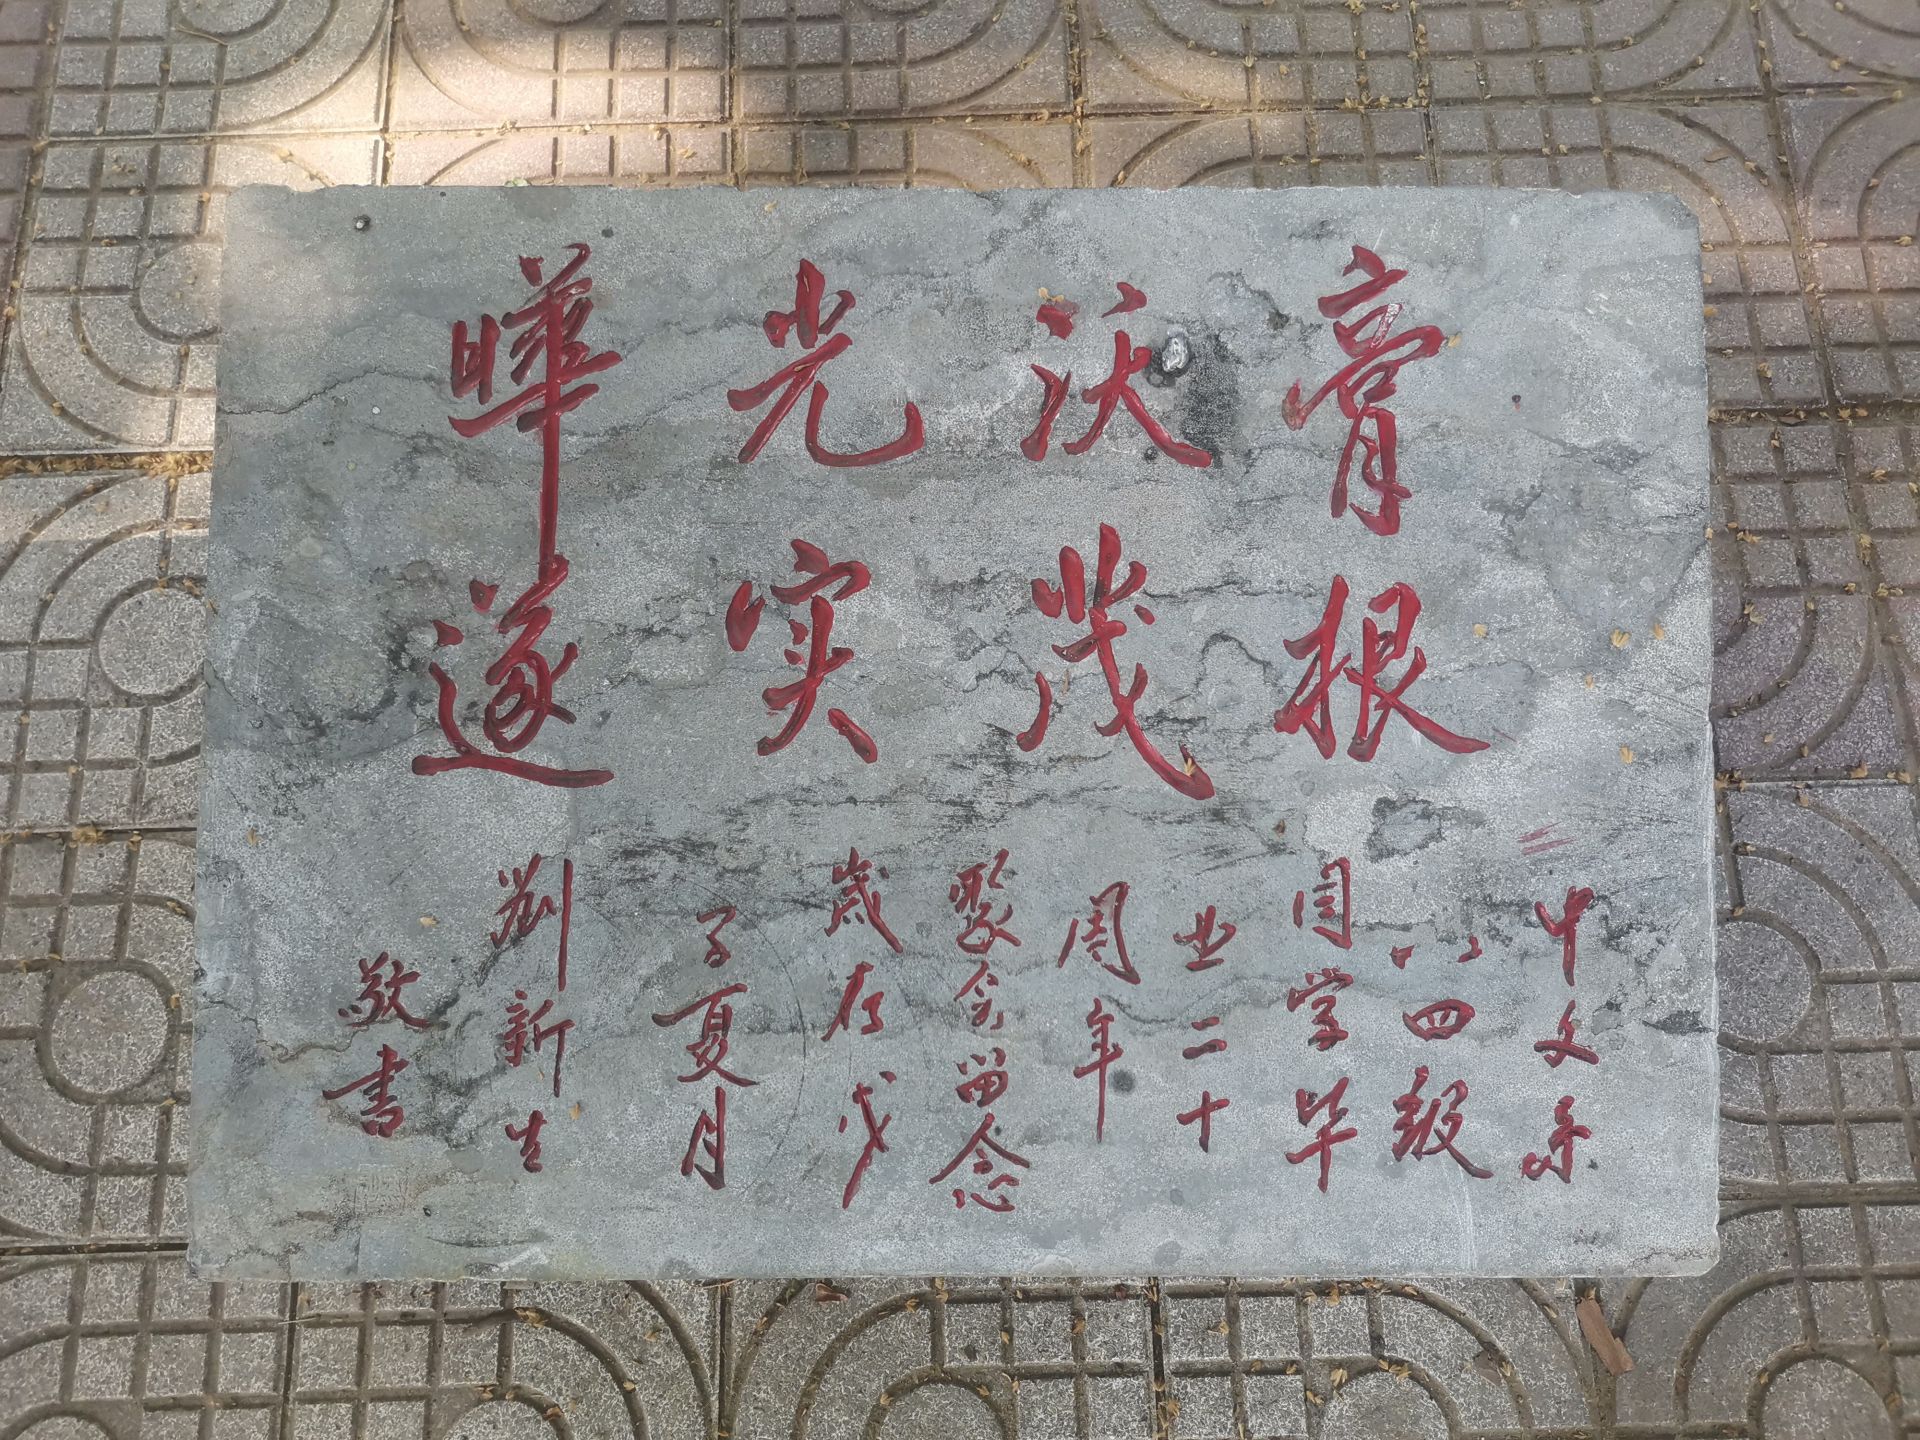 膏沃光曄
根茂实遂
中文系
八四级
同学毕
业二十
周年
聚會留念
歲在戊
子夏月
劉新生
敬書